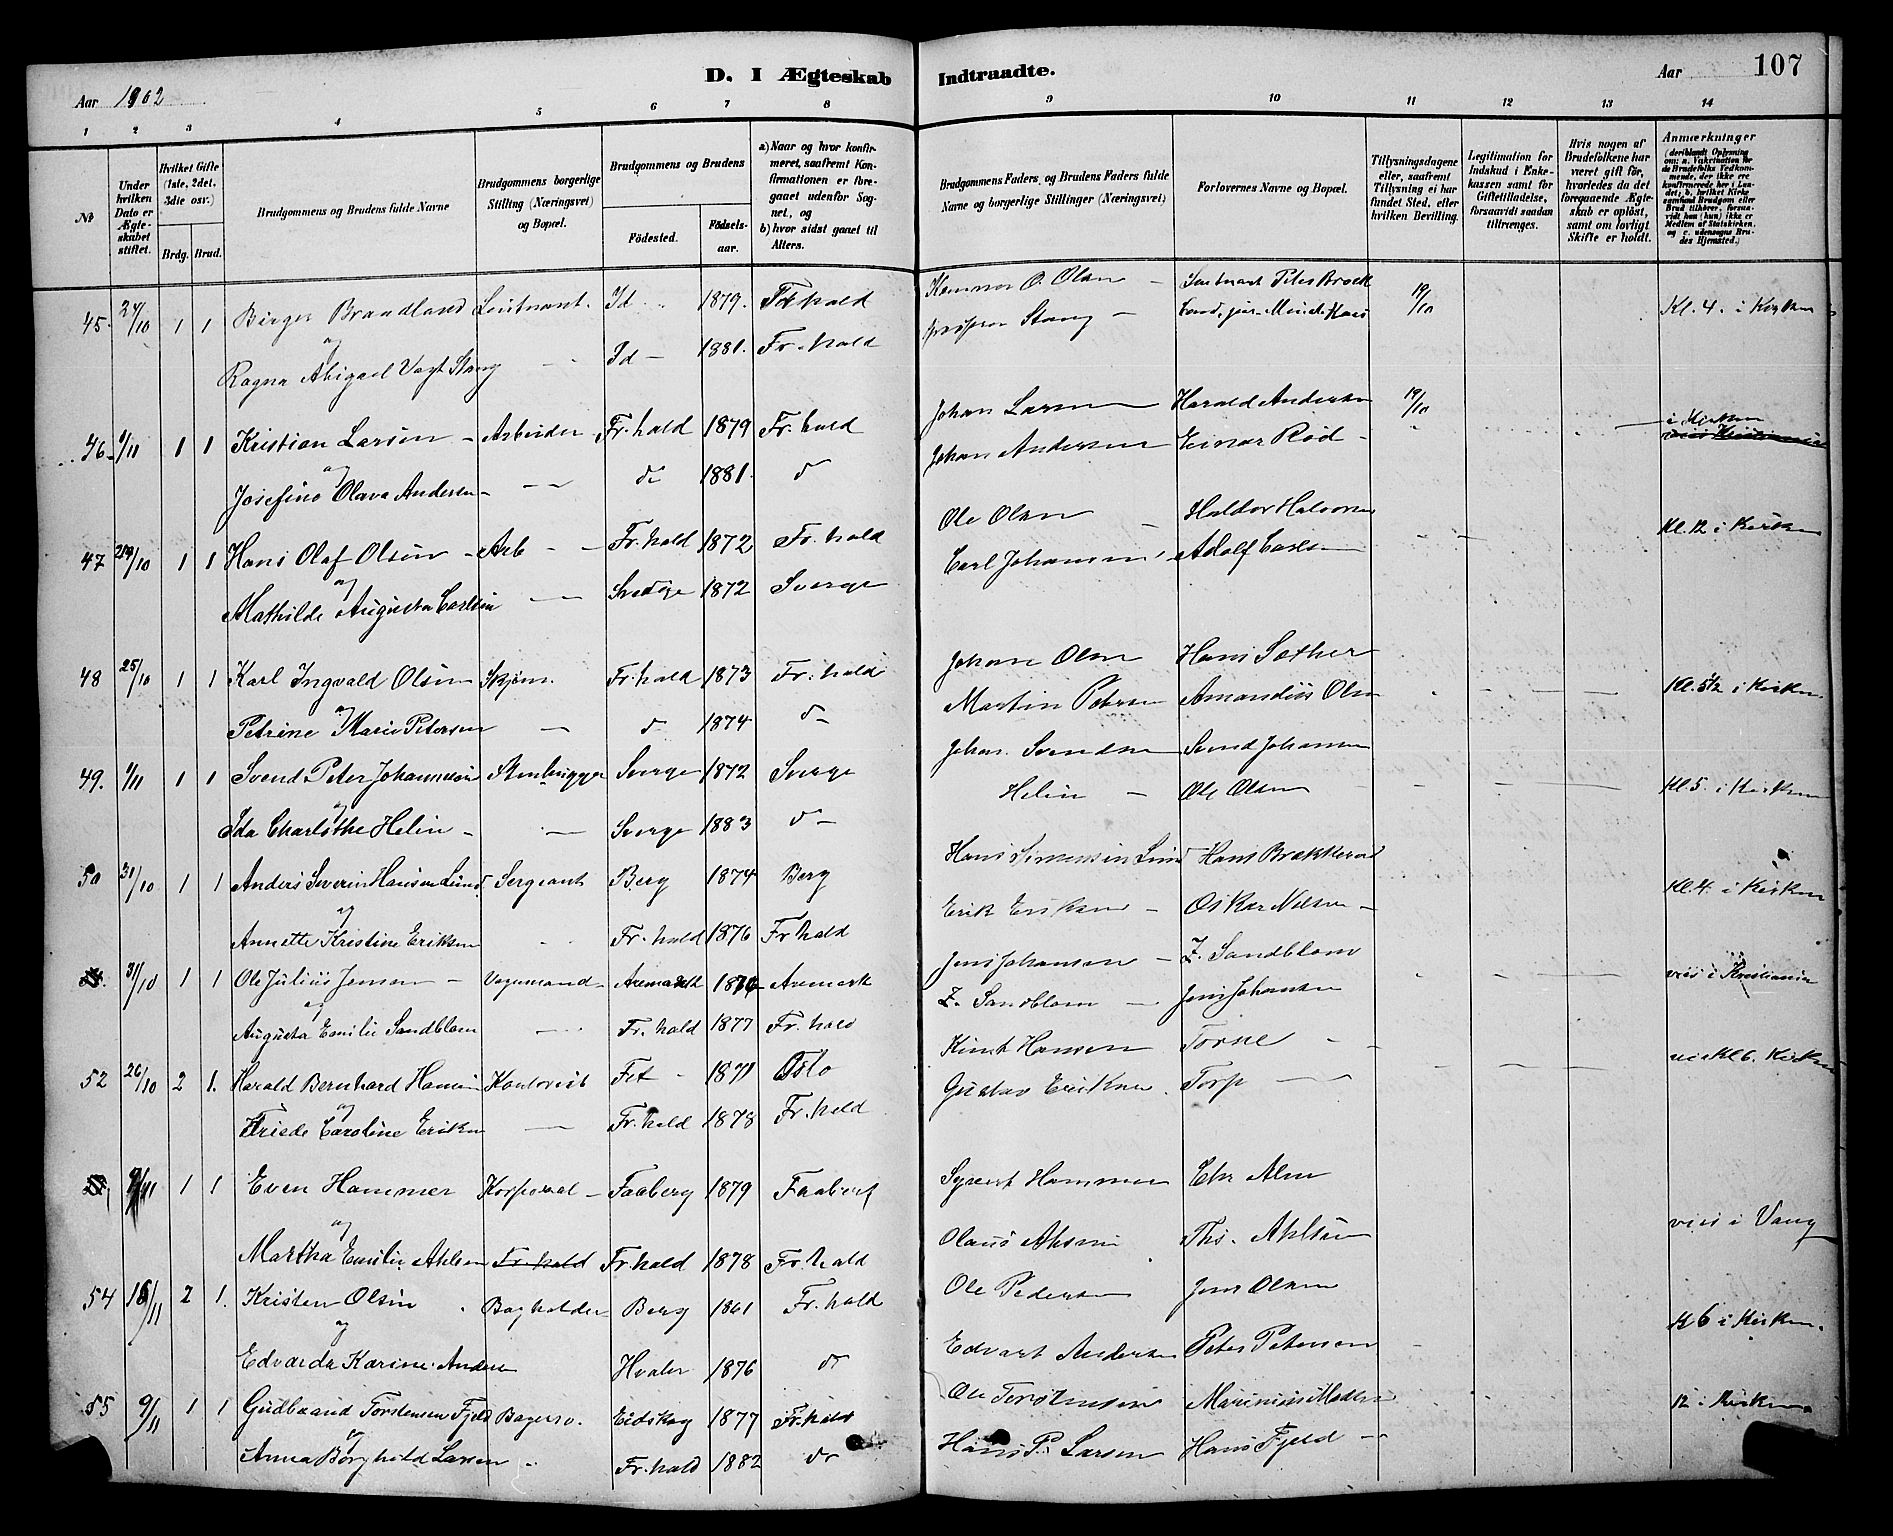 D. I Ægteskab Indtraadte.
Aar 1902
Aar
107
1 2 3 4 5 6 7 8 9 10 11 12 13 14
№
Under hvilken Dato er Ægteskabet stiftet.
Hvilket Gifte (1ste, 2det, 3die osv.)
Brdg. Brud.
Brudgommens og Brudens fulde Navne
Brudgommens borgerlige Stilling (Næringsvei) og Bopæl.
Brudgommens og Brudens
Fødested.
Fødselsaar.
a) Naar og hvor konfirmeret, saafremt Konfirmationen er foregaaet udenfor Sognet, og
b) hvor sidst gaaet til Alters.
Brudgommens Faders, og Brudens Faders fulde Navne og borgerlige Stillinger (Næringsvei)
Forlovernes Navne og Bopæl.
Tillysningsdagene eller, saafremt Tillysning ei har fundet Sted, efter hvilken Bevilling.
Legitimation for Indskud i Enkekassen samt for Giftetilladelse, forsaavidt saadan tiltrænges.
Hvis nogen af Brudefolkene har været gift før, hvorledes da det foregaaende Ægteskab er opløst, samt om lovligt Skifte er holdt.
Anmærkninger
(deriblandt Oplysning om: a. Vakcination for de Brudefolks Vedkommende, der ikke ere konfirmerede her i Landet; b. hvilket Kirkesamfund Brudgom eller Brud tilhører, forsaavidt han (hun) ikke er Medlem af Statskirken, og c. udensogns Brudes Hjemsted.)
45. 24/10 1 1 Birger Brandland Leutnant. Id 1879. Fr.hald O. Olsen — Peter Brock 19/10 Kl. 4. i Kirken
og
Ragna Abigael Vogt Stang — Id — 1881. Fr. hald Stang —
46. 1/11 1 1 Kristian Larsen Arbeider Fr. hald 1879 Fr. hald Johan Larsen Harald Andersen 19/10 i Kirken
og
Josefine Olava Andersen — do 1881. do Johan Andersen Einar Rød
47 29/10 1 1 Hans Olaf Olsen Arb — Fr. hald 1872 Fr. hald Ole Olsen Haldor Halvorsen Kl. 12 i Kirken
og
Mathilde Augusta Carlsen — Sverige 1872 Sverge Carl Johansen Adolf Carlsen
48 25/10 1 1 Karl Ingvald Olsen Fr. hald 1873 Fr. hald Johan Olsen Hans Sæther Kl. 5 1/2 i Kirken
og
Petrine Marie Petersen — do 1874 do Martin Petersen Amandus Olsen
49. 1/11 1 1 Svend Peter Johannesen Stenhugger Sverge 1872 Sverge Johan. Svendsen Svend Johansen Kl. 5. i Kirken
og
Ida Charlothe Helin — Sverge 1883 do Helin — Ole Olsen
50 31/10 1 1 Anders Severin Hansen Lund Sergeant Berg 1874 Berg Hans Simensen Lund Hans Brækkerød Kl. 4. i Kirken
og
Annette Kristine Eriksen Fr. hald 1876 Fr hald Erik Eriksen — Oskar Nilsen —
31/10 1 1 Ole Julius Jensen — Vognmand Aremark Aremark Jens Johansen — Z. Sandblom viet i Kristiania
og
Augusta Emilie Sandblom — Fr. hald 1877 Fr. hald Z. Sandblom — Jens Johansen
52 26/10 2 1. Harald Bernhard Hansen Kontorist Fet 1871 Oslo Knut Hansen Torne viet Kl 6. Kirken
og
Friede Caroline Eriksen — Fr. hald 1878 Fr. hald Gustav Eriksen. Torp —
1 1 Even Hammer Korporal — Faaberg 1879 Faaberg Syvert Hammer Chr Alm viet i Vang
og
Martha Emilie Ahlsen Fr. hald Fr. hald 1878 Fr. hald Olaus Ahlsen Ths. Ahlsen
54 2 1. Kristen Olsen Bogholder Berg 1861 Fr. hald Ole Pedersen Jens Olsen Kl 6 i Kirken.
og
Edvarda Karine Andersen Hvaler 1876 do Edvart Andersen Peter Petersen
55 9/11 1 1 Gudbrand Torstensen Fjeld Bagersv. Eidskog 1877 Fr. hald Ole Torstensen Marinius Madsen 12 i Kirken
og
Anna Borghild Larsen Fr. hald 1882 do Hans P. Larsen Hans Fjeld —